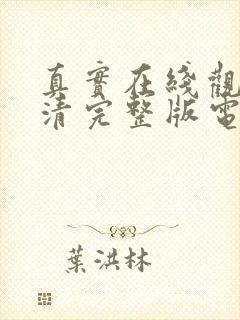 真實在綫觀
清完整版電
葉洪林